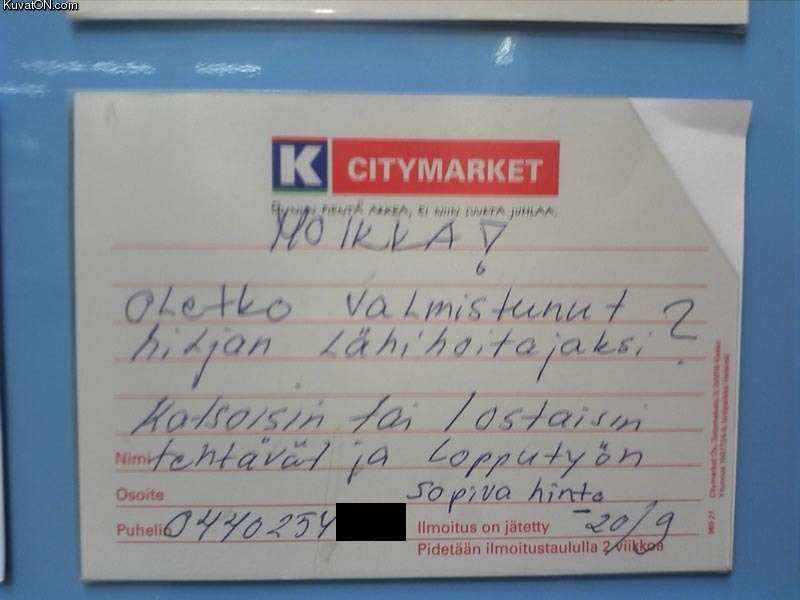 KuvatON.com
K CITYMARKET
NIIN PIENTÄ ARKEA, EI NIIN SUURTA JUHLAA.
MOIKKA!
OLetko vaLmistunut
hiLjan Lähihoitajaksi ?
Katsoisin tai lostaisin
Nimi tehtävät ja Lopputyön
Osoite sopiva hinta
Puhelin 0440254 Ilmoitus on jätetty 20/9
Pidetään ilmoitustaululla 2 viikkoa
960-27 Citymarket Oy,